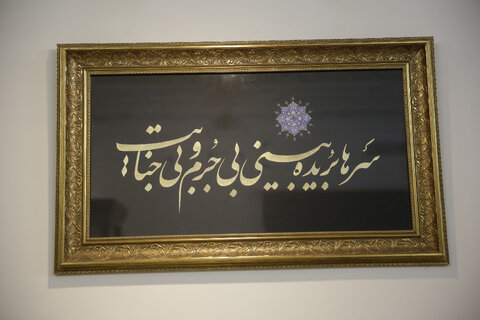 سرها بریده بینی بی جرم و بی جنایت